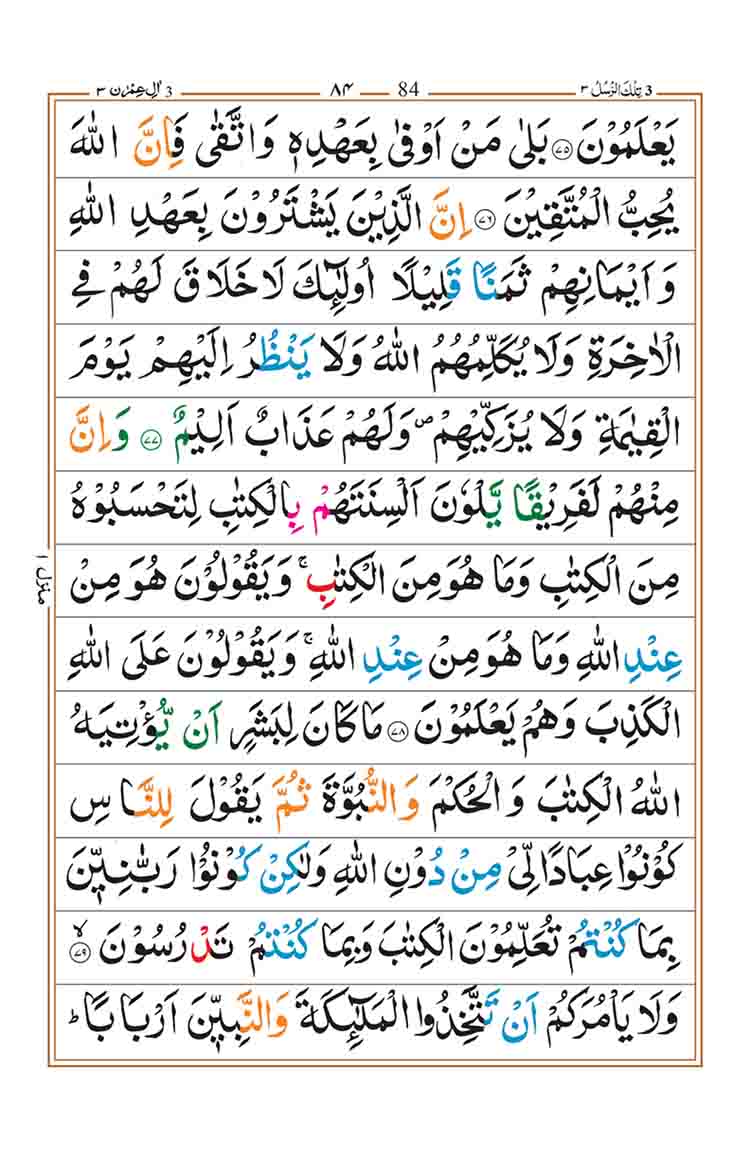 3 تِلْكَ الرُّسُلُ ٣
84 ٨٤
3 اٰلِ عِمْرٰن ٣
يَعْلَمُوْنَ ۝٧٥ بَلٰى مَنْ اَوْفٰى بِعَهْدِهٖ وَاتَّقٰى فَاِنَّ اللّٰهَ
يُحِبُّ الْمُتَّقِيْنَ ۝٧٦ اِنَّ الَّذِيْنَ يَشْتَرُوْنَ بِعَهْدِ اللّٰهِ
وَاَيْمَانِهِمْ ثَمَنًا قَلِيْلًا اُولٰٓئِكَ لَا خَلَاقَ لَهُمْ فِي
الْاٰخِرَةِ وَلَا يُكَلِّمُهُمُ اللّٰهُ وَلَا يَنْظُرُ اِلَيْهِمْ يَوْمَ
الْقِيٰمَةِ وَلَا يُزَكِّيْهِمْ ۖ وَلَهُمْ عَذَابٌ اَلِيْمٌ ۝٧٧ وَاِنَّ
مِنْهُمْ لَفَرِيْقًا يَّلْوٗنَ اَلْسِنَتَهُمْ بِالْكِتٰبِ لِتَحْسَبُوْهُ
مِنَ الْكِتٰبِ وَمَا هُوَ مِنَ الْكِتٰبِ ۚ وَيَقُوْلُوْنَ هُوَ مِنْ
عِنْدِ اللّٰهِ وَمَا هُوَ مِنْ عِنْدِ اللّٰهِ ۚ وَيَقُوْلُوْنَ عَلَى اللّٰهِ
الْكَذِبَ وَهُمْ يَعْلَمُوْنَ ۝٧٨ مَا كَانَ لِبَشَرٍ اَنْ يُّؤْتِيَهُ
اللّٰهُ الْكِتٰبَ وَالْحُكْمَ وَالنُّبُوَّةَ ثُمَّ يَقُوْلَ لِلنَّاسِ
كُوْنُوْا عِبَادًا لِّيْ مِنْ دُوْنِ اللّٰهِ وَلٰكِنْ كُوْنُوْا رَبّٰنِيّٖنَ
بِمَا كُنْتُمْ تُعَلِّمُوْنَ الْكِتٰبَ وَبِمَا كُنْتُمْ تَدْرُسُوْنَ ۙ ۝٧٩
وَلَا يَاْمُرَكُمْ اَنْ تَتَّخِذُوا الْمَلٰٓئِكَةَ وَالنَّبِيّٖنَ اَرْبَابًا ؕ
منزل ١